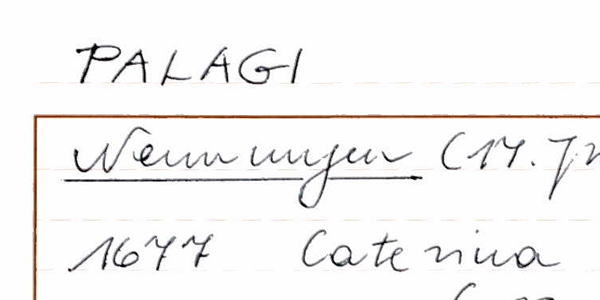 PALAGI
Nennungen (17. J
1677 Caterina